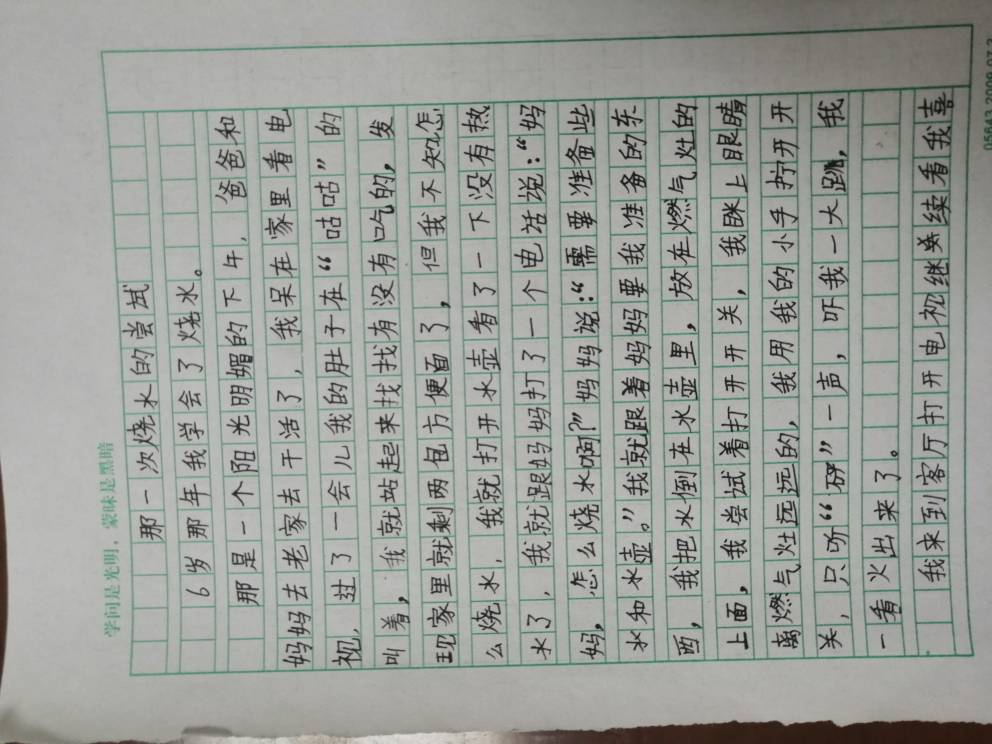 学问是光明，蒙昧是黑暗
那一次烧水的尝试
6岁那年我学会了烧水。
那是一个阳光明媚的下午，爸爸和
妈妈去老家去干活了，我呆在家里看电
视，过了一会儿我的肚子在“咕咕”的
叫着，我就站起来找找有没有吃的，发
现家里就剩两包方便面了，但我不知怎
么烧水，我就打开水壶看了一下没有热
水了，我就跟妈妈打了一个电话说：“妈
妈，怎么烧水啊？”妈妈说：“需要准备些
水和水壶。”我就跟着妈妈要我准备的东
西，我把水倒在水壶里，放在燃气灶的
上面，我尝试着打开开关，我眯上眼睛
离燃气灶远远的，我用我的小手拧开开
关，只听“砰”一声，吓我一大跳，我
一看火出来了。
我来到客厅打开电视继续看我喜
05643.2009.07.2